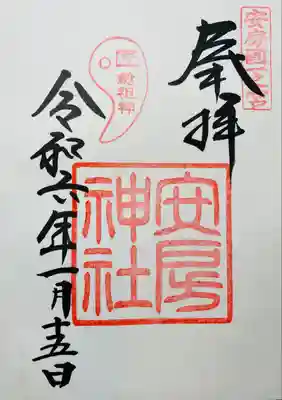 安房國一之宮
奉拝
安房神社
令和六年一月十五日